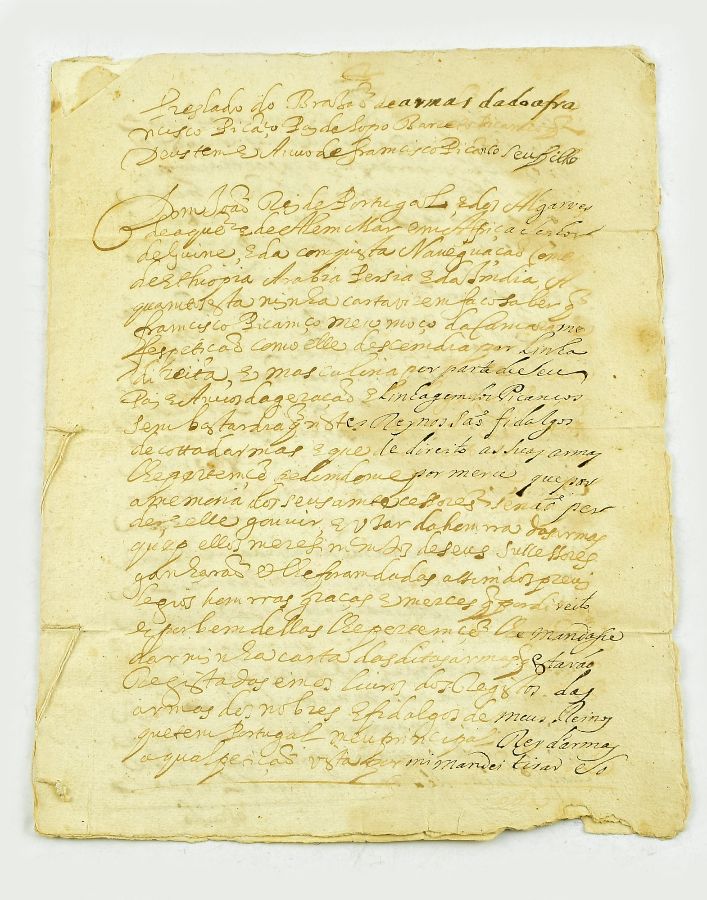 Treslado do Brazaõ de armas dado a fra
ncisco Picãço Pay de Lopo Barreto Picanço q
Deus tem e Avuo de francisco Picanço seu filho
Dom Joaõ Rey de Portugal, e dos Algarves
daquẽ e dalem Mar em Affrica senhor
de Guine, e da comquista Naveguaçaõ Comer
de Ethiopia Arabia Persia e da India, A
quamtos esta minha carta virem faço saber q
francisco Picamço meu moço da Camara me
fes petiçaõ como elle descemdia por linha
direita, e mascullina por parte de seu
Pai e Avuos da geraçaõ e linhagem dos Picanços
sem bastardia q nestes Reynos saõ fidalgos
de cotta darmas e que de direito as suas armas
lhe pertẽcẽ pedimdome por merce que por
a memoria dos seus amtecessores se naõ per
der e elle gouvir, e usar da homrra das armas
que ellos merescimentos de seus
ganharaõ e lhe foram dadas assim dos previ
legios homrras graças e merces q por direito
e por bem dellas lhe pertemcẽ lhe mandase
dar minha carta das ditas armas q estavaõ
Registadas em os livros dos Registos das
armas dos nobres e fidalgos de meus Reinos
que tem Portugal meu principal Rey darmas
a qual petiçaõ vista por mi mandei tirar e so